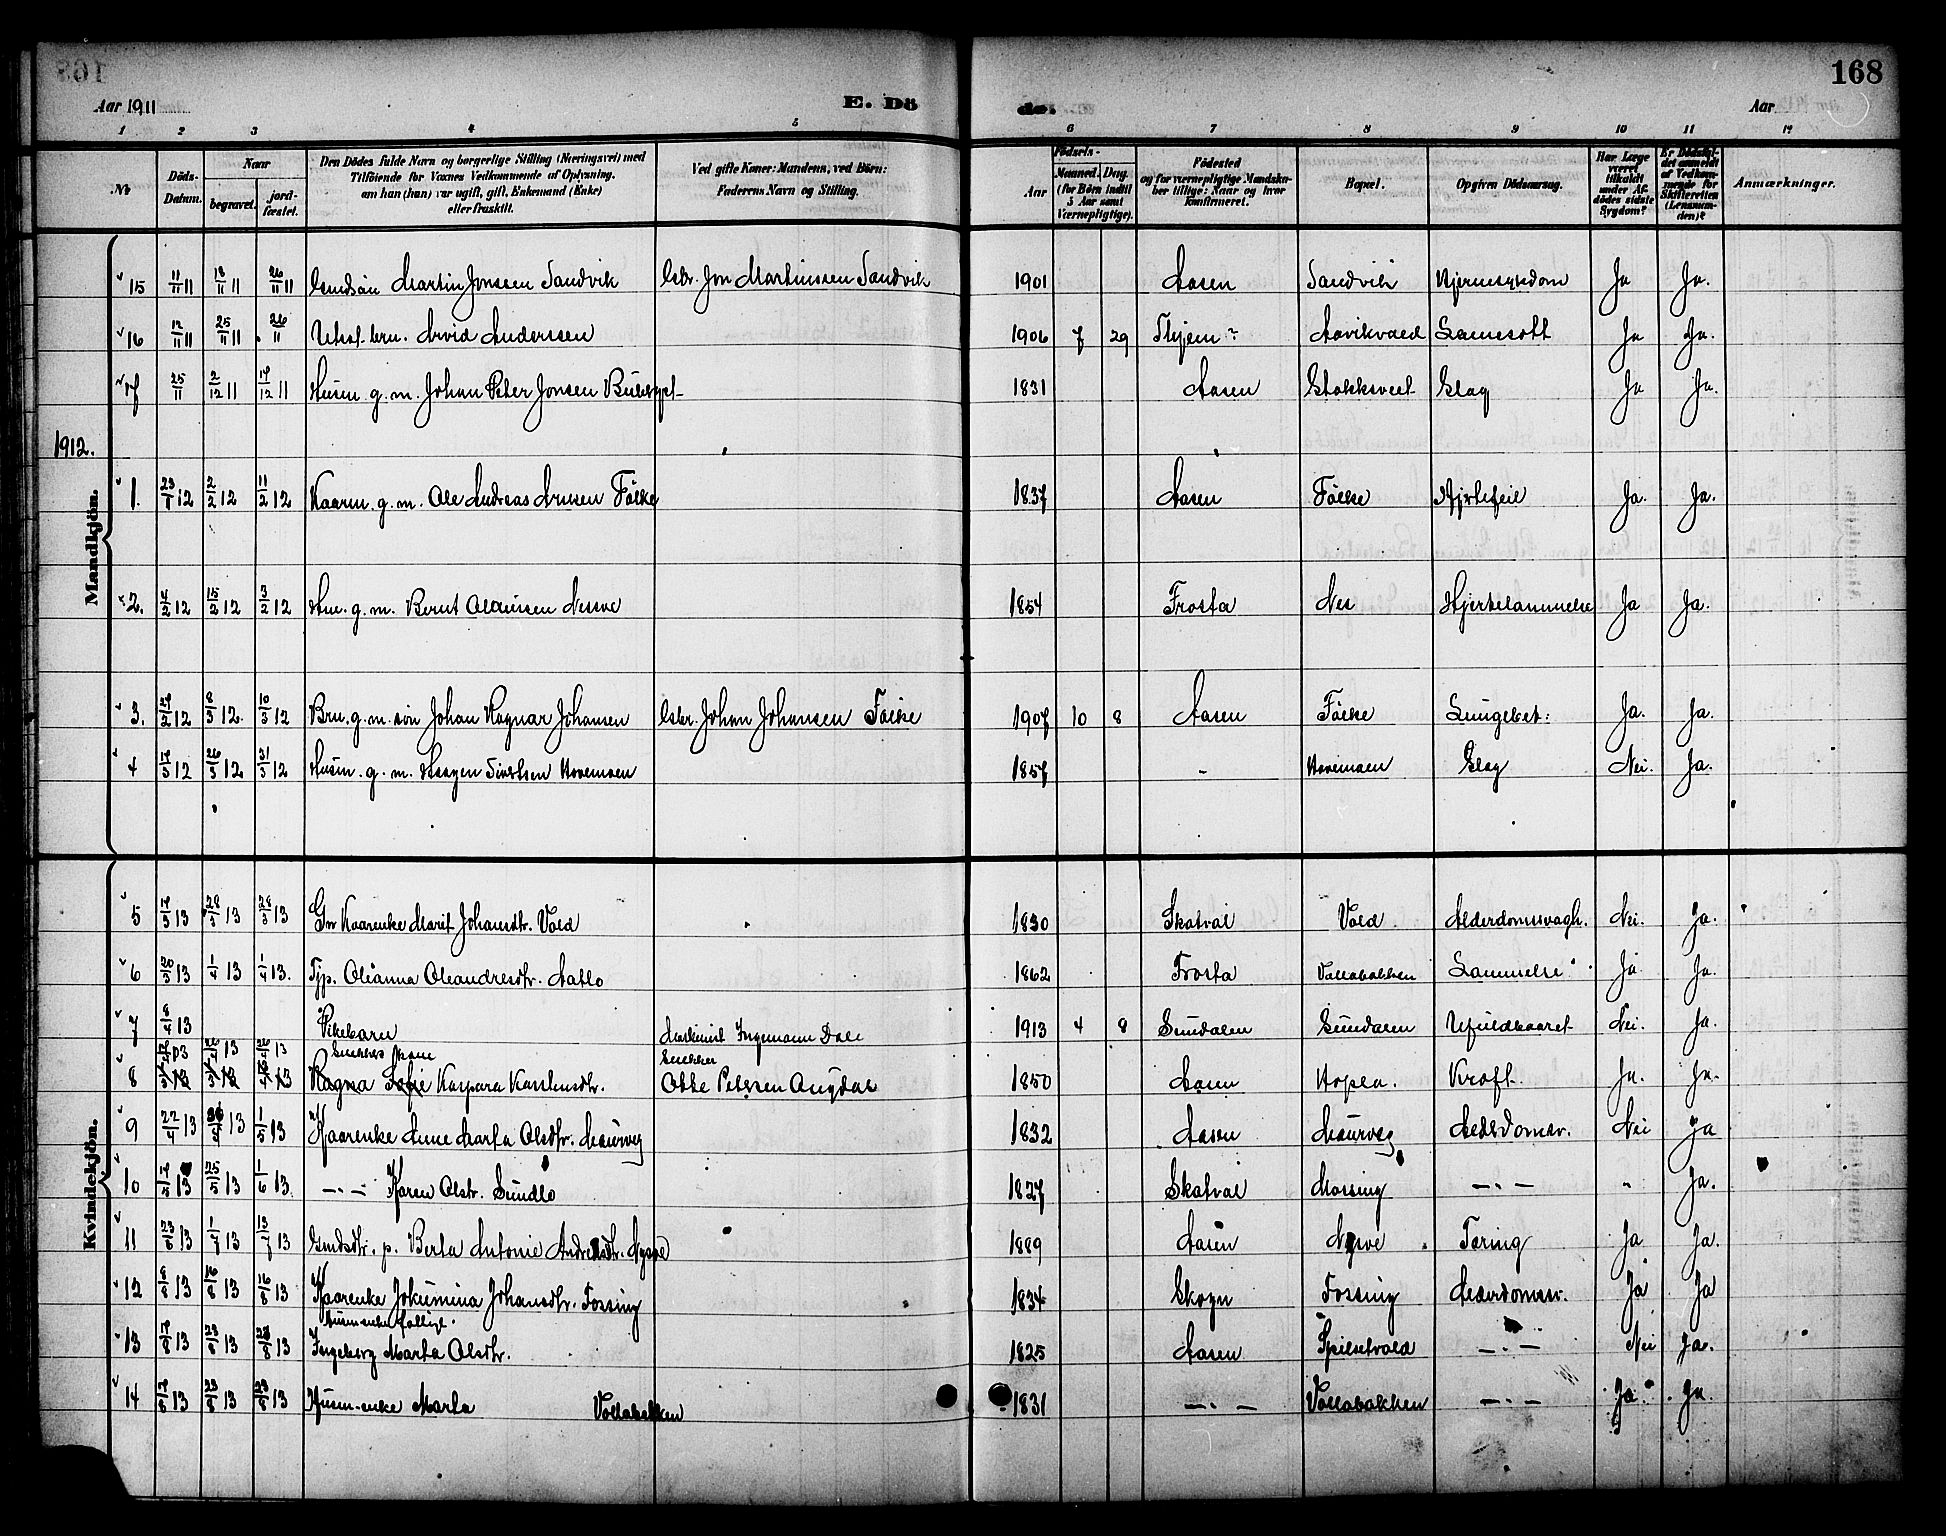 168
Aar 1911 E. Dö de. Aar
1 2 3 3 4 5 6 7 8 9 10 11 12
No
Döds-Datum.
Naar
begravet. jord-fæstet.
Den Dödes fulde Navn og borgerlige Stilling (Næringsvei) med
Tilföiende for Voxnes Vedkommende af Oplysning.
om han (hun) var ugift, gift, Enkemand (Enke)
eller fraskilt.
Ved gifte Koner: Mandens, ved Börn:
Faderens Navn og Stilling.
Födsels-
Aar
Maaned. Dag.
(for Börn indtil
5 Aar samt
Værnepligtige).
Födested
og for værnepligtige Mandska-
ber tillige: Naar og hvor
konfirmeret.
Bopæl.
Opgiven Dödsaarsag.
Har Læge
været
tilkaldt
under Af-
dödes sidste
Sygdom?
Er Dödsfal-
det anmeldt
af Vedkom-
mende for
Skifteretten
(Lensman-
den)?
Anmærkninger.
Mandkjön.
15 11/11 11 18/11 11 26/11 11 Gmdsön Martin Jonssen Sandvik Gbr. Jon Martinssen Sandvik 1901 Aasen Sandvik Hjernesykdom Ja Ja.
16 12/11 11 25/11 11 26/11 Arvid Anderssen 1906 7 29 Aavikvald Ja Ja.
17 25/11 2/12 11 17/12 11 Husm. g. m. Johan Peter Jonsen 1831 Aasen Slag Ja Ja.
1912.
1. 23/1 12 2/2 12 11/2 12 Kaarm. g. m. Ole Andreas Arnsen Fölke 1837 Aasen Fölke Hjertefeil Ja. Ja.
2. 4/2 12 15/2 12 3/2 12 g. m. Bernt Olausen Nessve 1854 Frosta Nes Hjertelammelse Ja Ja.
3. 8/3 12. 10/3 12 Bru. g. m. sön Johan Ragnar Johansen Gbr. Johan Johansen Fölke 1907 10 8 Aasen Fölke Lungebet: Ja. Ja.
4 26/3 12 31/3 12 Husm. g. m. Haagen Sivertsen Hovemoen 1857 - Hovemoen Slag Nei. Ja.
Kvindekjön.
5 28/3 13 28/3 13 Kaarenke Marit Johansdtr. Vold 1830 Skatval Vold. Alderdomssvagh. Nei. Ja.
6 1/4 13 1/4 13. Tjp. Olianna Oleandersdtr. Aatlo 1862 Frosta Vollabakken Lammelse. Ja Ja.
7 8/4 13 Pikebarn Maskinist Ingemann Dale 1913 4 8 Sundalen Sundalen Ufuldbaaret Nei. Ja.
Snekkes kone Snekker
8 Ragna Sofie Kaspara Karstensdtr. Otte Petersen Augdal 1850 Aasen Hopla. Kræft Ja. Ja.
9 22/4 13 1/5 13 Kaarenke Anne Marta Olsdtr. Maurveg 1832 Aasen Maurveg Nei Ja
10 25/5 13 1/6 13. — · — Karen Olsdtr. Sundlo 1827 Skatval Mossing — · — " Ja.
11 13 13 13 Gmdsdtr. p. Berta Antonie Andreasdtr. Nysve 1889 Aasen Nysve Tæring Ja Ja.
12 8/8 13 16/8 13 16/8 13 Kaarenke Jokumina Johansdtr. Fossing 1834 Skogn Fossing Ja Ja
Husm.enke fattigl.
13 13 23/8 13 13 Ingeborg Marta Olsdtr. 1825 Aasen Spilsetvald — · — Nei Ja.
14 13 23/8 13 13 Husm-enke Marta Vollabakken 1831 — · — Vollabakken — · — Ja. Ja.